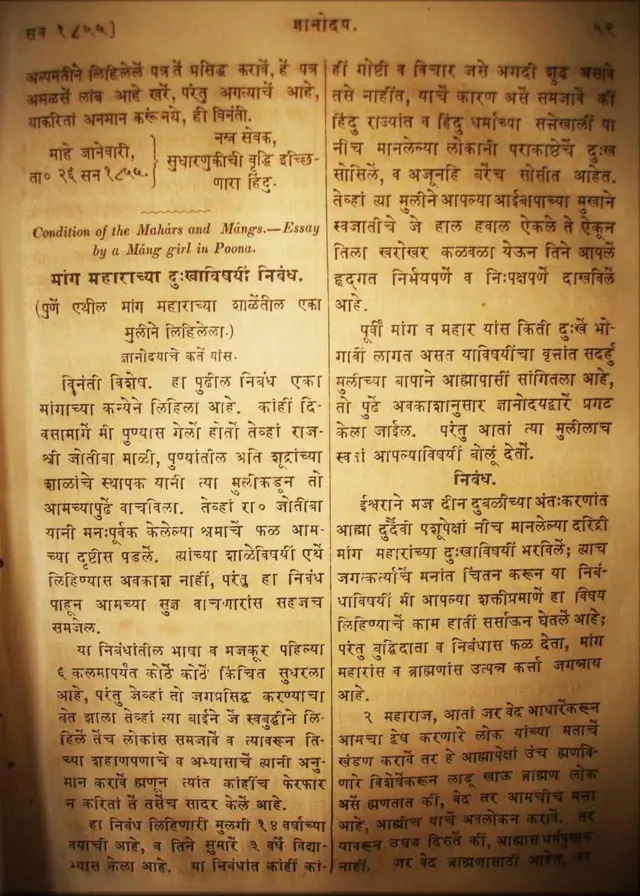 सन १८५५]
ज्ञानोदय.
५९
अल्पमतीने लिहिलेलें पत्र तें प्रसिद्ध करावें, हें पत्र
अमळसें लांब आहे खरें, परंतु अगत्याचें आहे,
याकरितां अनमान करूं नये, ही विनंती.
माहे जानेवारी,
ता० २६ सन १८५५.
नम्र सेवक,
सुधारणुकीची वृद्धि इच्छि-
णारा हिंदु.
Condition of the Mahárs and Mángs.—Essay
by a Máng girl in Poona.
मांग महाराच्या दुःखाविषयीं निबंध.
(पुणें एथील मांग महाराच्या शाळेंतील एका
मुलीने लिहिलेला.)
ज्ञानोदयाचे कर्ते यांस.
विनंती विशेष. हा पुढील निबंध एका
मांगाच्या कन्येने लिहिला आहे. कांहीं दि-
वसामागें मी पुण्यास गेलों होतों तेव्हां राज-
श्री जोतीबा माळी, पुण्यांतील अति शूद्रांच्या
शाळांचे स्थापक यानी त्या मुलीकडून तो
आमच्यापुढें वाचविला. तेव्हां रा० जोतीबा
यानी मनःपूर्वक केलेल्या श्रमाचें फळ आम-
च्या दृष्टीस पडलें. त्यांच्या शाळेविषयीं एथें
लिहिण्यास अवकाश नाहीं, परंतु हा निबंध
पाहून आमच्या सुज्ञ वाचणारांस सहजच
समजेल.
या निबंधांतील भाषा व मजकूर पहिल्या
६ कलमापर्यंत कोठें कोठें किंचित सुधरला
आहे, परंतु जेव्हां तो जगप्रसिद्ध करण्याचा
बेत झाला तेव्हां त्या बाईने जें स्वबुद्धीने लि-
हिलें तेंच लोकांस समजावें व त्यावरून ति-
च्या शहाणपणाचे व अभ्यासाचें त्यानी अनु-
मान करावें ह्मणून त्यांत कांहींच फेरफार
न करितां तें तसेंच सादर केलें आहे.
हा निबंध लिहिणारी मुलगी १४ वर्षांच्या
वयाची आहे, व तिने सुमारें ३ वर्षें विद्या-
भ्यास केला आहे. या निबंधांत कांहीं कां-
हीं गोष्टी व विचार जसे अगदी शुद्ध असावे
तसे नाहींत, याचें कारण असें समजावें कीं
हिंदु राज्यांत व हिंदु धर्माच्या सत्तेखालीं या
नीच मानलेल्या लोकानी पराकाष्ठेचें दुःख
सोसिलें, व अजूनहि बरेंच सोसीत आहेत.
तेव्हां त्या मुलीने आपल्या आईबापाच्या मुखाने
स्वजातीचे जे हाल हवाल ऐकले ते ऐकून
तिला खरोखर कळवळा येऊन तिने आपलें
हृद्गत निर्भयपणें व निःपक्षपणें दाखविलें
आहे.
पूर्वीं मांग व महार यांस किती दुःखें भो-
गावीं लागत असत याविषयींचा वृत्तांत सदर्हु
मुलीच्या बापाने आह्मापासीं सांगितला आहे,
तो पुढें अवकाशानुसार ज्ञानोदयद्वारें प्रगट
केला जाईल. परंतु आतां त्या मुलीलाच
स्वतां आपल्याविषयीं बोलूं देतों.
निबंध.
ईश्वराने मज दीन दुबळीच्या अंतःकरणांत
आह्मा दुर्दैवी पशूपेक्षां नीच मानलेल्या दरिद्री
मांग महारांच्या दुःखाविषयीं भरविलें; त्याच
जगत्कर्त्याचें मनांत चिंतन करून या निबं-
धाविषयीं मी आपल्या शक्तीप्रमाणें हा विषय
लिहिण्याचें काम हातीं सर्साऊन घेतलें आहे;
परंतु बुद्धिदाता व निबंधास फळ देता, मांग
महारांस व ब्राह्मणांस उत्पन्न कर्त्ता जगन्नाथ
आहे.
२ महाराज, आतां जर वेद आधारेंकरून
आमचा द्वेष करणारे लोक यांच्या मताचें
खंडण करावें तर हे आह्मापेक्षां उंच ह्मणवि-
णारे विशेषेंकरून लाडू खाऊ ब्राह्मण लोक
असें ह्मणतात कीं, वेद तर आमचीच मत्ता
आहे, आह्मीच याचें अवलोकन करावें. तर
यावरून उघड दिसतें कीं, आह्मास धर्मपुस्तक
नाहीं. जर वेद ब्राह्मणासाठीं आहेत, तर